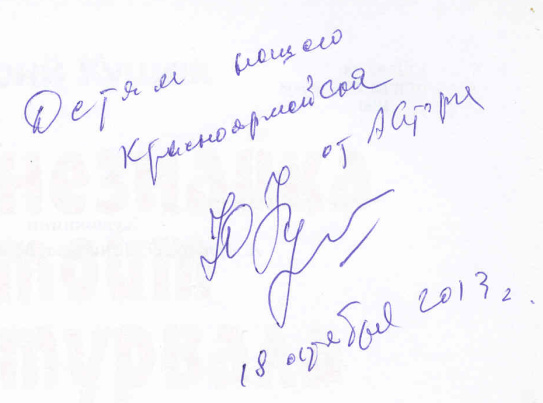 Детям нашего
Красноармейска
от Автора
18 октября 2013 г.